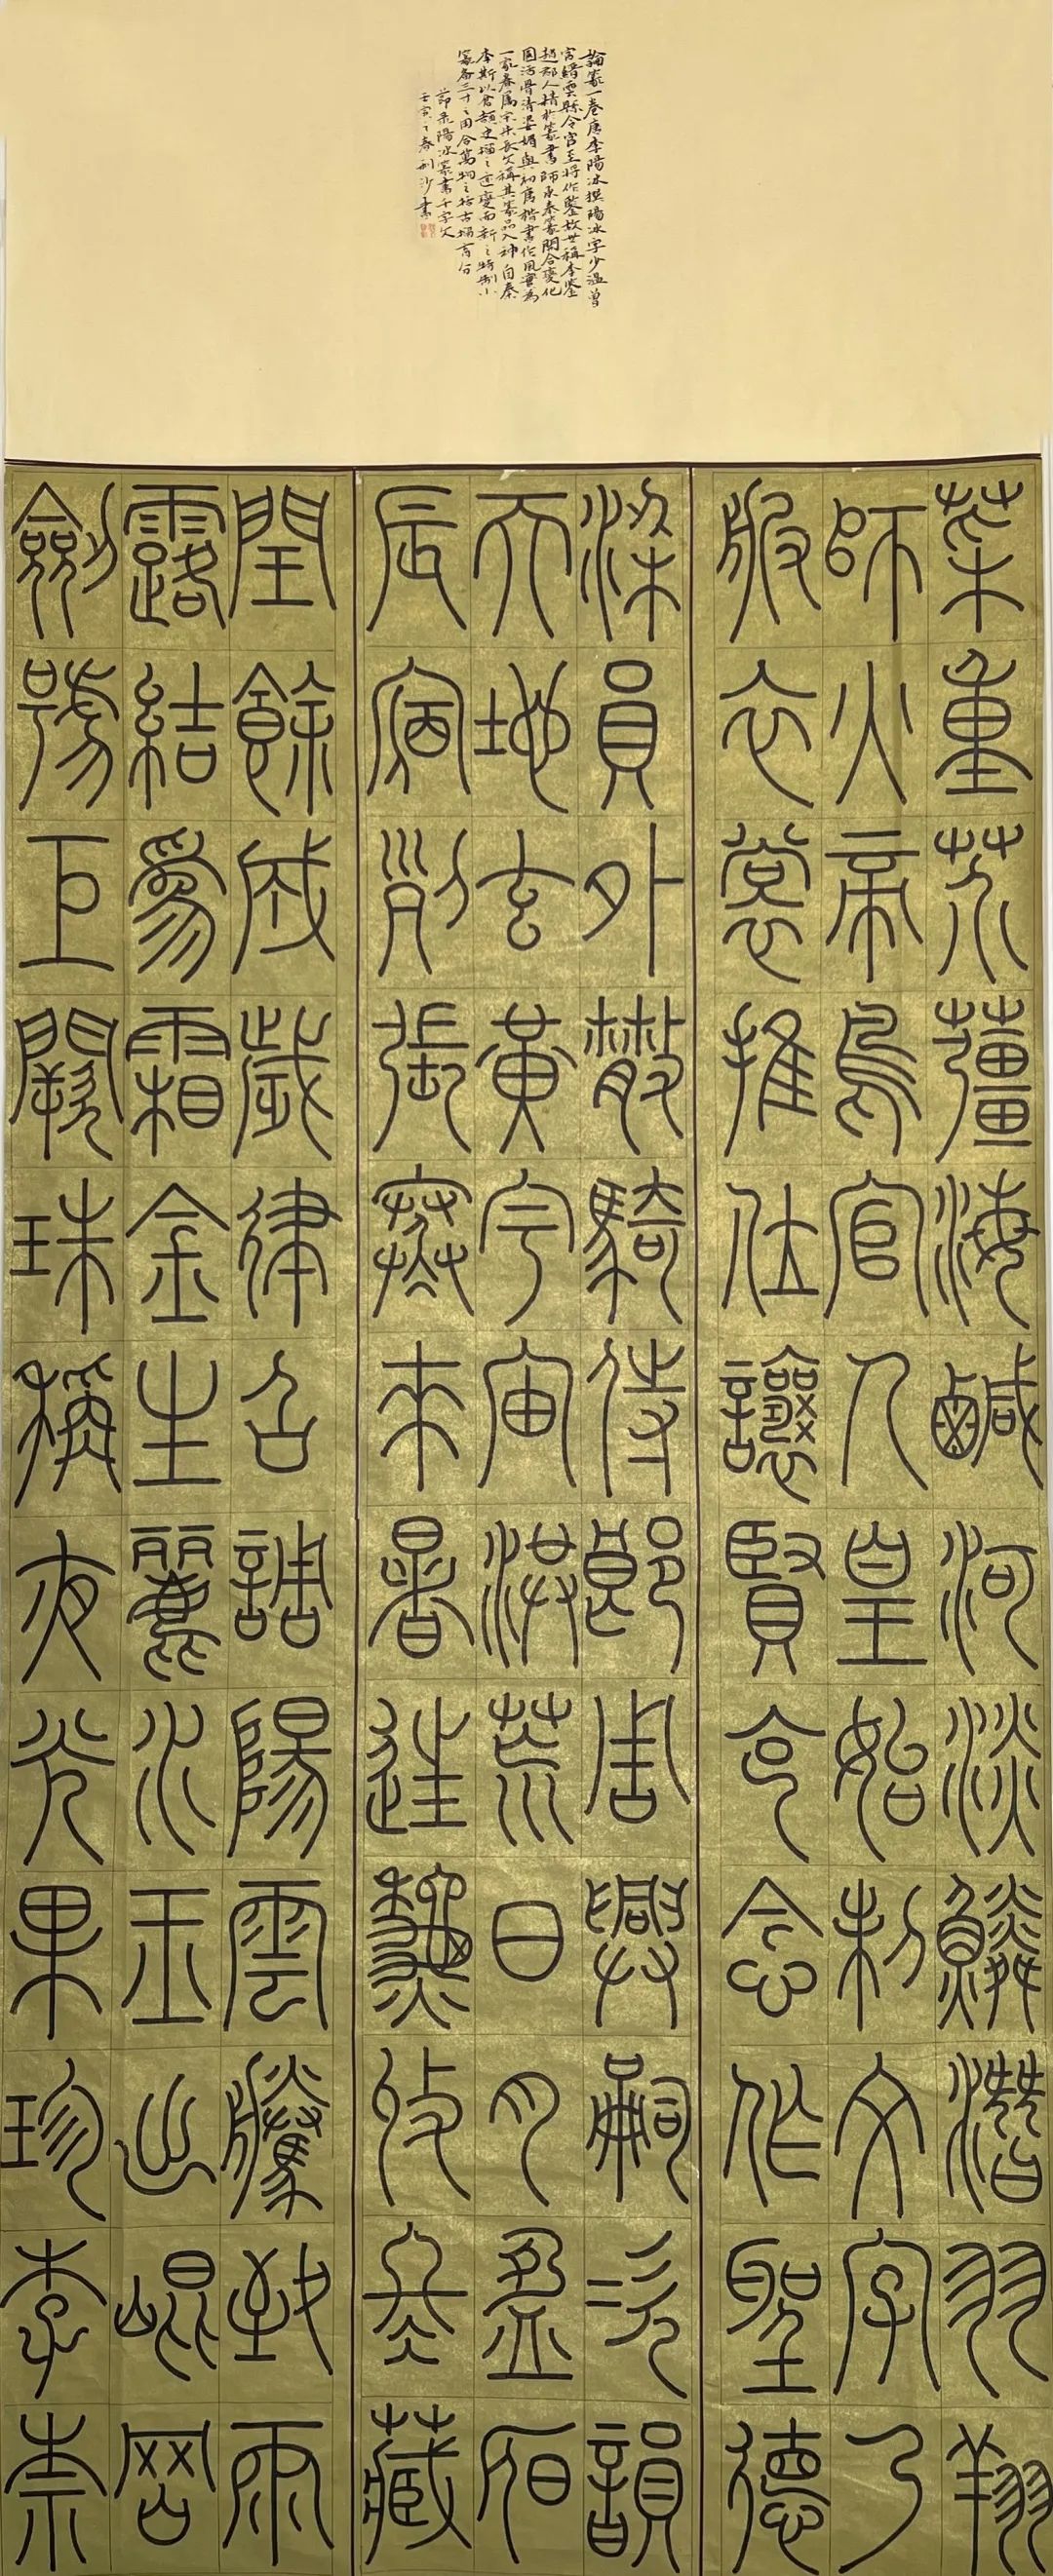 論篆一卷唐李陽冰撰陽冰字少溫曾
官縉雲縣令官至將作監故世稱李監
趙郡人精於篆書師承秦篆開合變化
圓活骨清姿媚與初唐楷書作風實為
一家眷屬宋朱長文稱其篆品入神自秦
李斯以倉頡史籀之迹變而新之特制小
篆备三才之用合萬物之
節录陽冰篆書千字文
壬寅之春 書
菜重芥薑海鹹河淡鱗潛羽翔
師火帝鳥官人皇始制文字乃
服衣裳推位讓賢克念作聖德
梁員外散騎侍郎周興嗣次韻
天地玄黃宇宙洪荒日月盈昃
辰宿列張寒來暑往秋收冬藏
閏餘成歲律召調陽雲騰致雨
露結為霜金生麗水玉出崐岡
劍號巨闕珠稱夜光果珍李柰